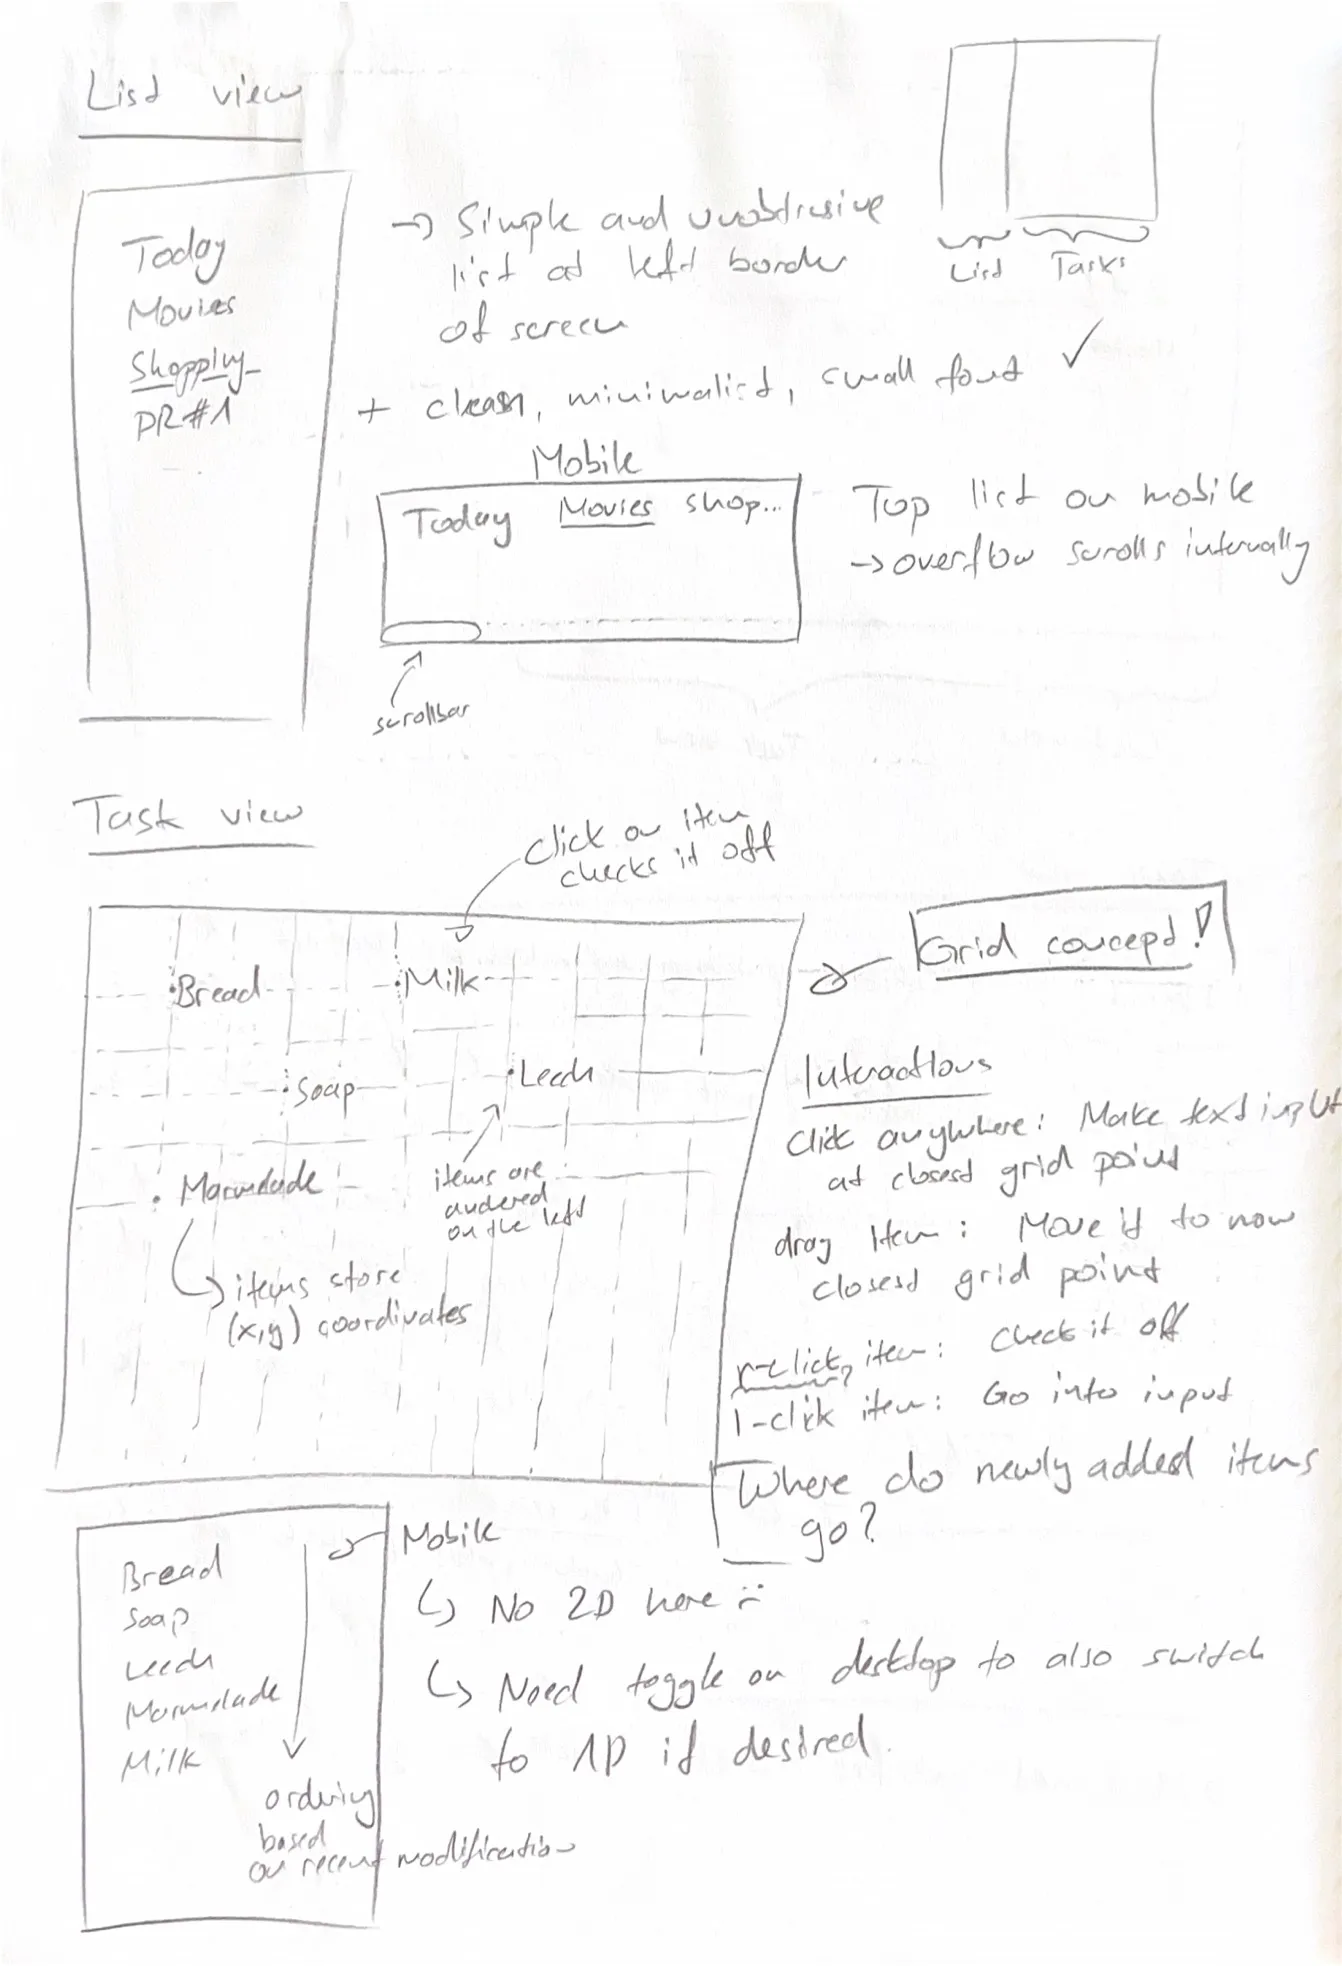 List view
Today
Movies
Shopping
PR#1
→ Simple and unobtrusive
list at left border
of screen
List
Tasks
+ clean, minimalist, small font ✓
Mobile
Today Movies shop...
scrollbar
Top list on mobile
→ overflow scrolls internally
Task view
click on item
checks it off
Bread
Milk
Soap
Leech
Marmelade
items are
anchored
on the left
items store
(x,y) coordinates
Grid concept!
Interactions
Click anywhere: Make text input
at closest grid point
drag item: Move it to now
closest grid point
r-click item: Check it off
l-click item: Go into input
Where do newly added items
go?
Bread
Soap
Leech
Marmelade
Milk
ordering
based
on recent modification
Mobile
No 2D here :-
Need toggle on desktop to also switch
to 1D if desired.